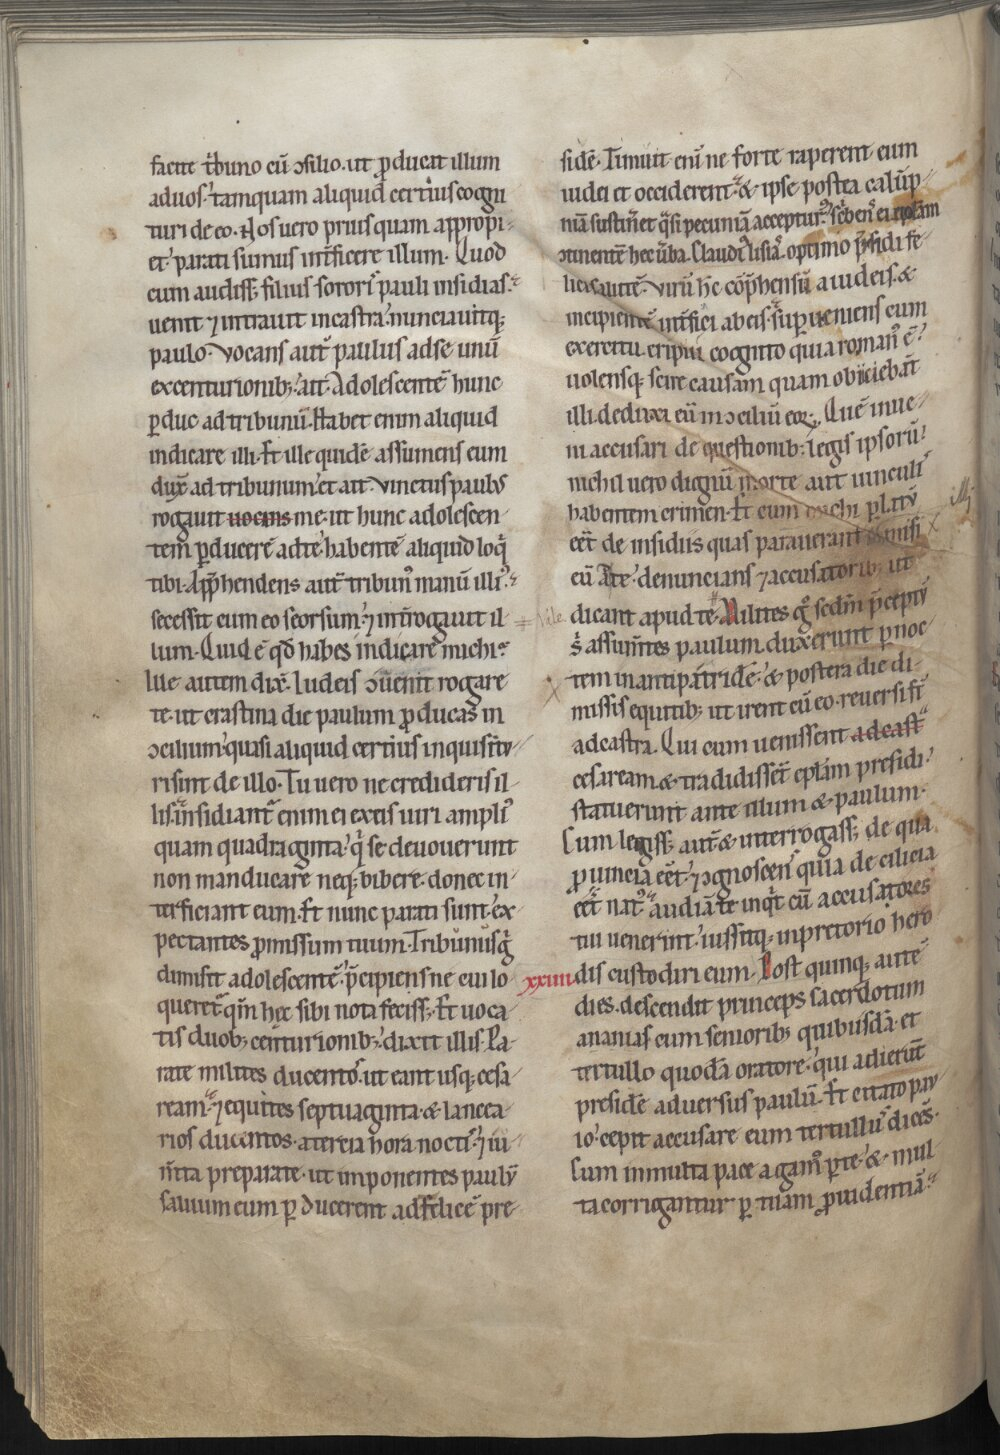 facite t̄buno cū ↄsilio. ut ꝓducat illum
aduos. tamquam aliquid certius cogni
turi de eo. Nos uero prius quam appropi-
et. parati sumus int̄ficere illum. Quod
cum audiss; filius soror᷒ pauli insidias.
uenit ⁊ intrauit incastra. nunciauitq;
paulo. Vocans aut̄ paulus adse unū
excenturionib;. ait. Adolescentē hunc
ꝑduc adtribunū. Habet enim aliquid
indicare illi. Et ille quidē assumens eum
dux̄ ad tribunum. et ait. Vinctus paulus
rogauit uocans me. ut hunc adolescen-
tem ꝑducerē adte habentē aliquid loq̄
tibi. App̄hendens aut̄ tribun᷒ manū illi᷒.
secessit cum eo seorsum. ⁊ int̄rogauit il-
lum. Quid ē qđ habes indicare michi?
Ille autem dix̄. Iudeis ↄuenit rogare
te. ut crastina die paulum ꝓducas in
ↄcilium. quasi aliquid certius inquisitu-
ri sint de illo. Tu uero ne credideris il-
lis. insidiant̄ enim ei exeis uiri ampli᷒
quam quadraginta. q̇ se deuouerunt
non manducare neq; bibere. donec in-
terficiant eum. Et nunc parati sunt ex-
pectantes ꝓmissum tuum. Tribunus g̊
dimisit adolescentē. p̄cipiens ne cui lo-
queret̄ qm̄ hec sibi nota feciss;. Et uoca-
tis duob; centurionib;. dixit illis. Pa-
rate milites ducentos. ut eant usq; cesa-
ream. ⁊ equites septuaginta. & lancea-
rios ducentos. a tercia hora noctis. ⁊ iu-
m̄ta preparate. ut imponentes paulū
saluum eum ꝑducerent ad felicē pre-
sidē. Timuit eni ne forte raperent eum
iudei et occiderent. & ipse postea calūp-
niā sustin̄et q̄si pecuniā acceptur᷒. Sc̄ben᷒ ei epl̄am
ↄtinentē hec ūba. Claudi᷒ lisia᷒. optimo p̄sidi fe-
lici salutē. Virū hc̄ cōp̄hensū a iudeis. &
incipientē int̄fici abeis. sup̱ueniens cum
exercitu eripui cognito quia roman᷒ ē.
uolensq; scire causam quam obiiciebāt
illi. deduxi eū in ↄciliū eoꝝ. Quē inue-
ni accusari de questionib; legis ipsorū.
nichil uero dignū morte aut uinculis
habentem crimen. Et cum michi ꝑlatū
eēt de insidiis quas parauerant ei misi
eū Ate. denuncians ⁊ accusatorib; ut
dicant apud te. Milites g̊ scdm̄ p̄ceptū
s̄ assum̄tes paulum. duxerunt ꝑ noc-
tem in antipatridē. & postera die di-
missis equitib; ut irent cū eo. reuersi st̄
adcastra. Qui cum uenissent adcast
cesaream. & tradidissēt epl̄am presidi.
statuerunt ante illum & paulum.
Cum legiss; aut̄ & interrogass; de qua
ꝓuincia eēt. ⁊ ↄgnoscen᷒ quia de cilicia
eēt nat᷒. audiā te inq̄t cū accusatores
tui uenerint. iussitq; inpretorio hero-
XXIIII dis custodiri eum. Post quinq; autē
dies. descendit princeps sacerdotum
ananias cum seniorib; quibusdā. et
tertullo quodā oratore. qui adierūt
presidē aduersus paulū. Et citato pau-
lo. cepit accusare eum tertullus dices̄.
Cum inmulta pace agam᷒ ꝑte. & mul-
ta corrigantur ꝑ tuam ꝓuidentiā.